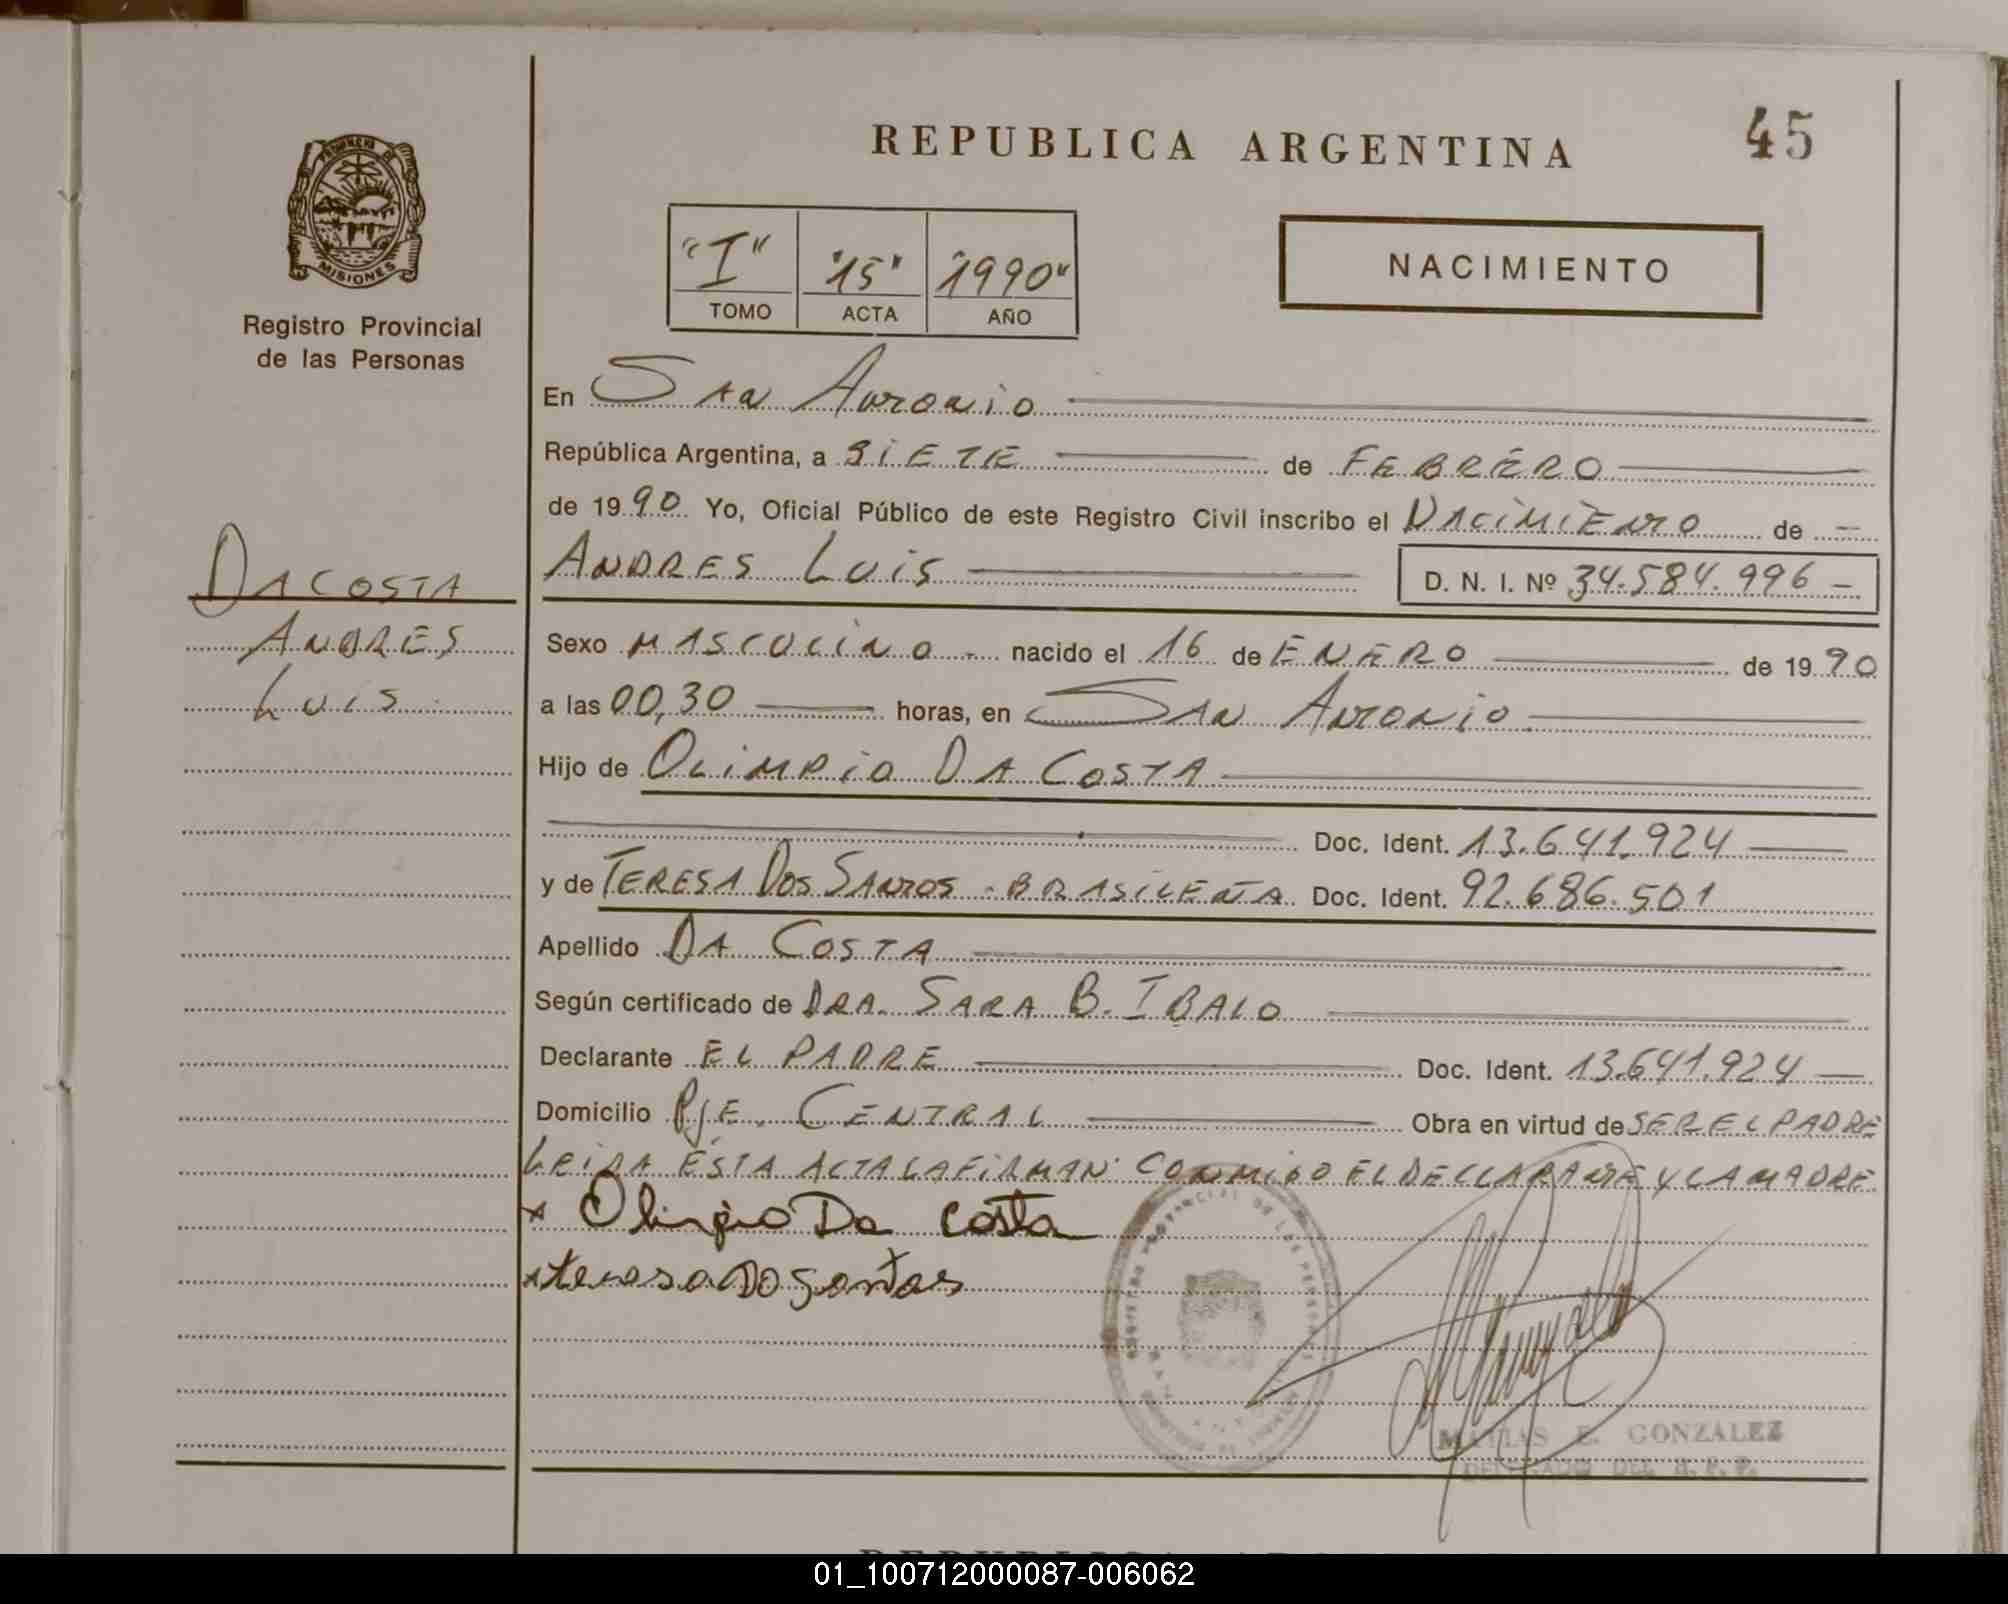 REPUBLICA ARGENTINA
45
PROVINCIA DE
MISIONES
Registro Provincial
de las Personas
"I" "15" "1990"
TOMO ACTA AÑO
NACIMIENTO
En SAN ANTONIO
República Argentina, a SIETE de FEBRERO
de 1990 Yo, Oficial Público de este Registro Civil inscribo el NACIMIENTO de
DA COSTA
ANDRES
LUIS
ANDRES LUIS D. N. I. Nº 34.584.996
Sexo MASCULINO nacido el 16 de ENERO de 1990
a las 00,30 horas, en SAN ANTONIO
Hijo de OLIMPIO DA COSTA
Doc. Ident. 13.641.924
y de TERESA DOS SANTOS - BRASILEÑA Doc. Ident. 92.686.501
Apellido DA COSTA
Según certificado de DRA. SARA B. IBALO
Declarante EL PADRE Doc. Ident. 13.641.924
Domicilio PJE. CENTRAL Obra en virtud de SER EL PADRE
LEIDA ESTA ACTA LA FIRMAN CONMIGO EL DECLARANTE Y LA MADRE
x Olimpio Da Costa
x teresa Do Santos
MATIAS E. GONZALEZ
DELEGADO DEL R. P. P.
01_100712000087-006062